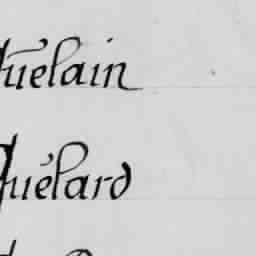 Quelain
Quélard